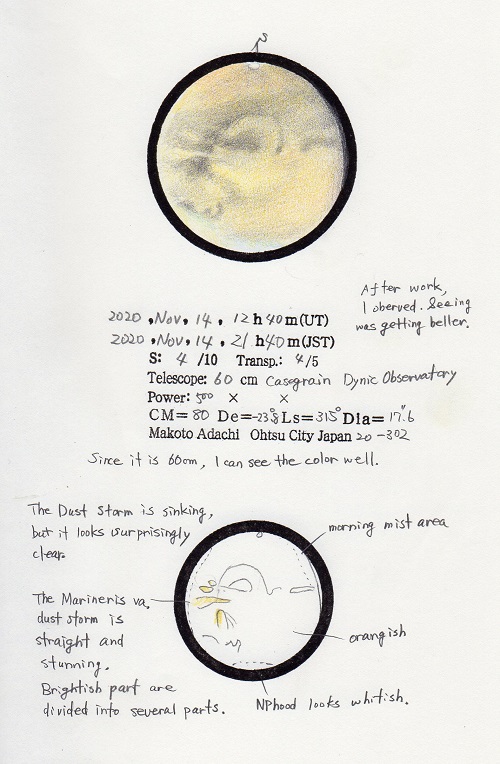 S
After work,
I oberved. Seeing
was getting beller.
2020 ,Nov, 14 , 12 h 40 m(UT)
2020 ,Nov, 14 , 21 h 40 m(JST)
S: 4 /10 Transp.: 4/5
Telescope: 60 cm Casegrain Dynic Observatory
Power: 500 × ×
CM= 80 De= -23°.8 Ls= 315° Dia= 17".6
Makoto Adachi Ohtsu City Japan 20 -302
Since it is 60cm, I can see the color well.
The Dust Storm is sinking,
but it looks surprisingly
clear.
morning mist area
The Marineris va.
dust storm is
straight and
stunning.
Brightish part are
divided into several parts.
orangish
NPhood looks whitish.